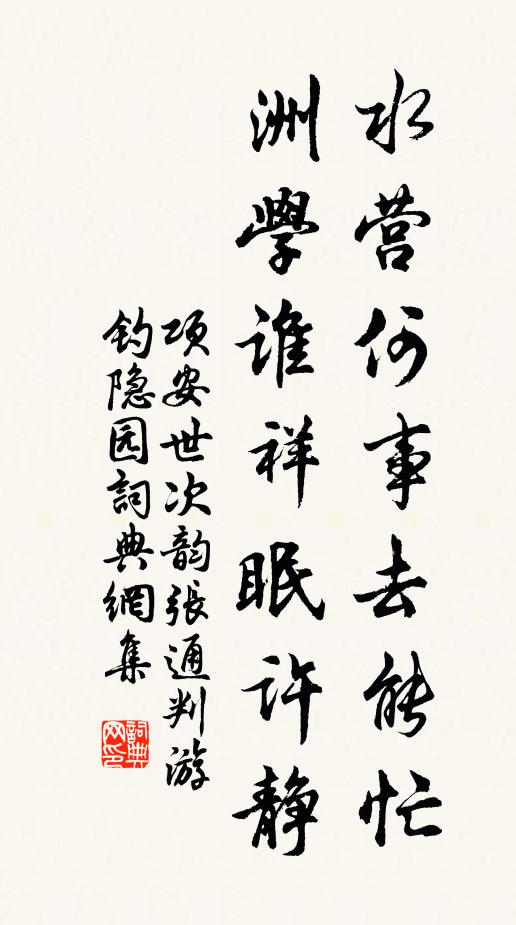 水营何事去能忙
洲學谁祥眠许静
项安世次韵張通判游
钓隐园詞典網集
詞典网印